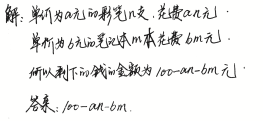 解：单价为a元的彩笔n支.花费an元.
单价为b元的笔记本m本花费bm元.
所以剩下的钱的金额为100-an-bm元.
答案：100-an-bm.